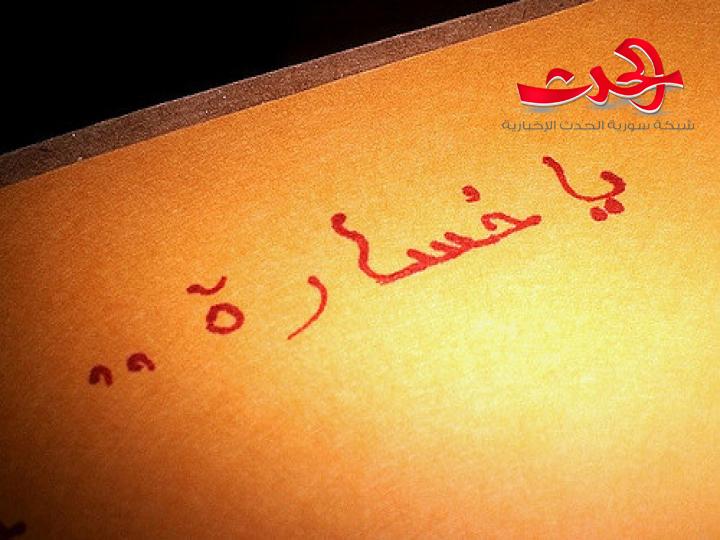 الحدث
شبكة سورية الحدث الإخبارية
يا خسارة ..